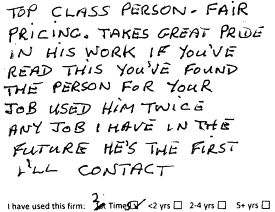 TOP CLASS PERSON - FAIR
PRICING. TAKES GREAT PRIDE
IN HIS WORK IF YOU'VE
READ THIS YOU'VE FOUND
THE PERSON FOR YOUR
JOB USED HIM TWICE
ANY JOB I HAVE IN THE
FUTURE HE'S THE FIRST
I'LL CONTACT
I have used this firm: Time <2 yrs 2-4 yrs 5+ yrs